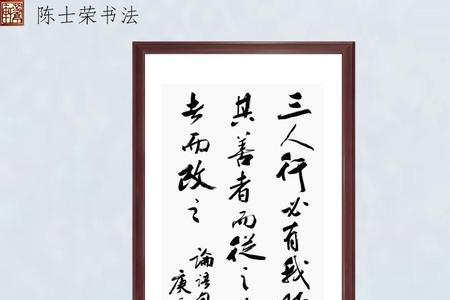 陈士荣书法
三人行必有我
其善者而從之
者而改之
论语句
庚